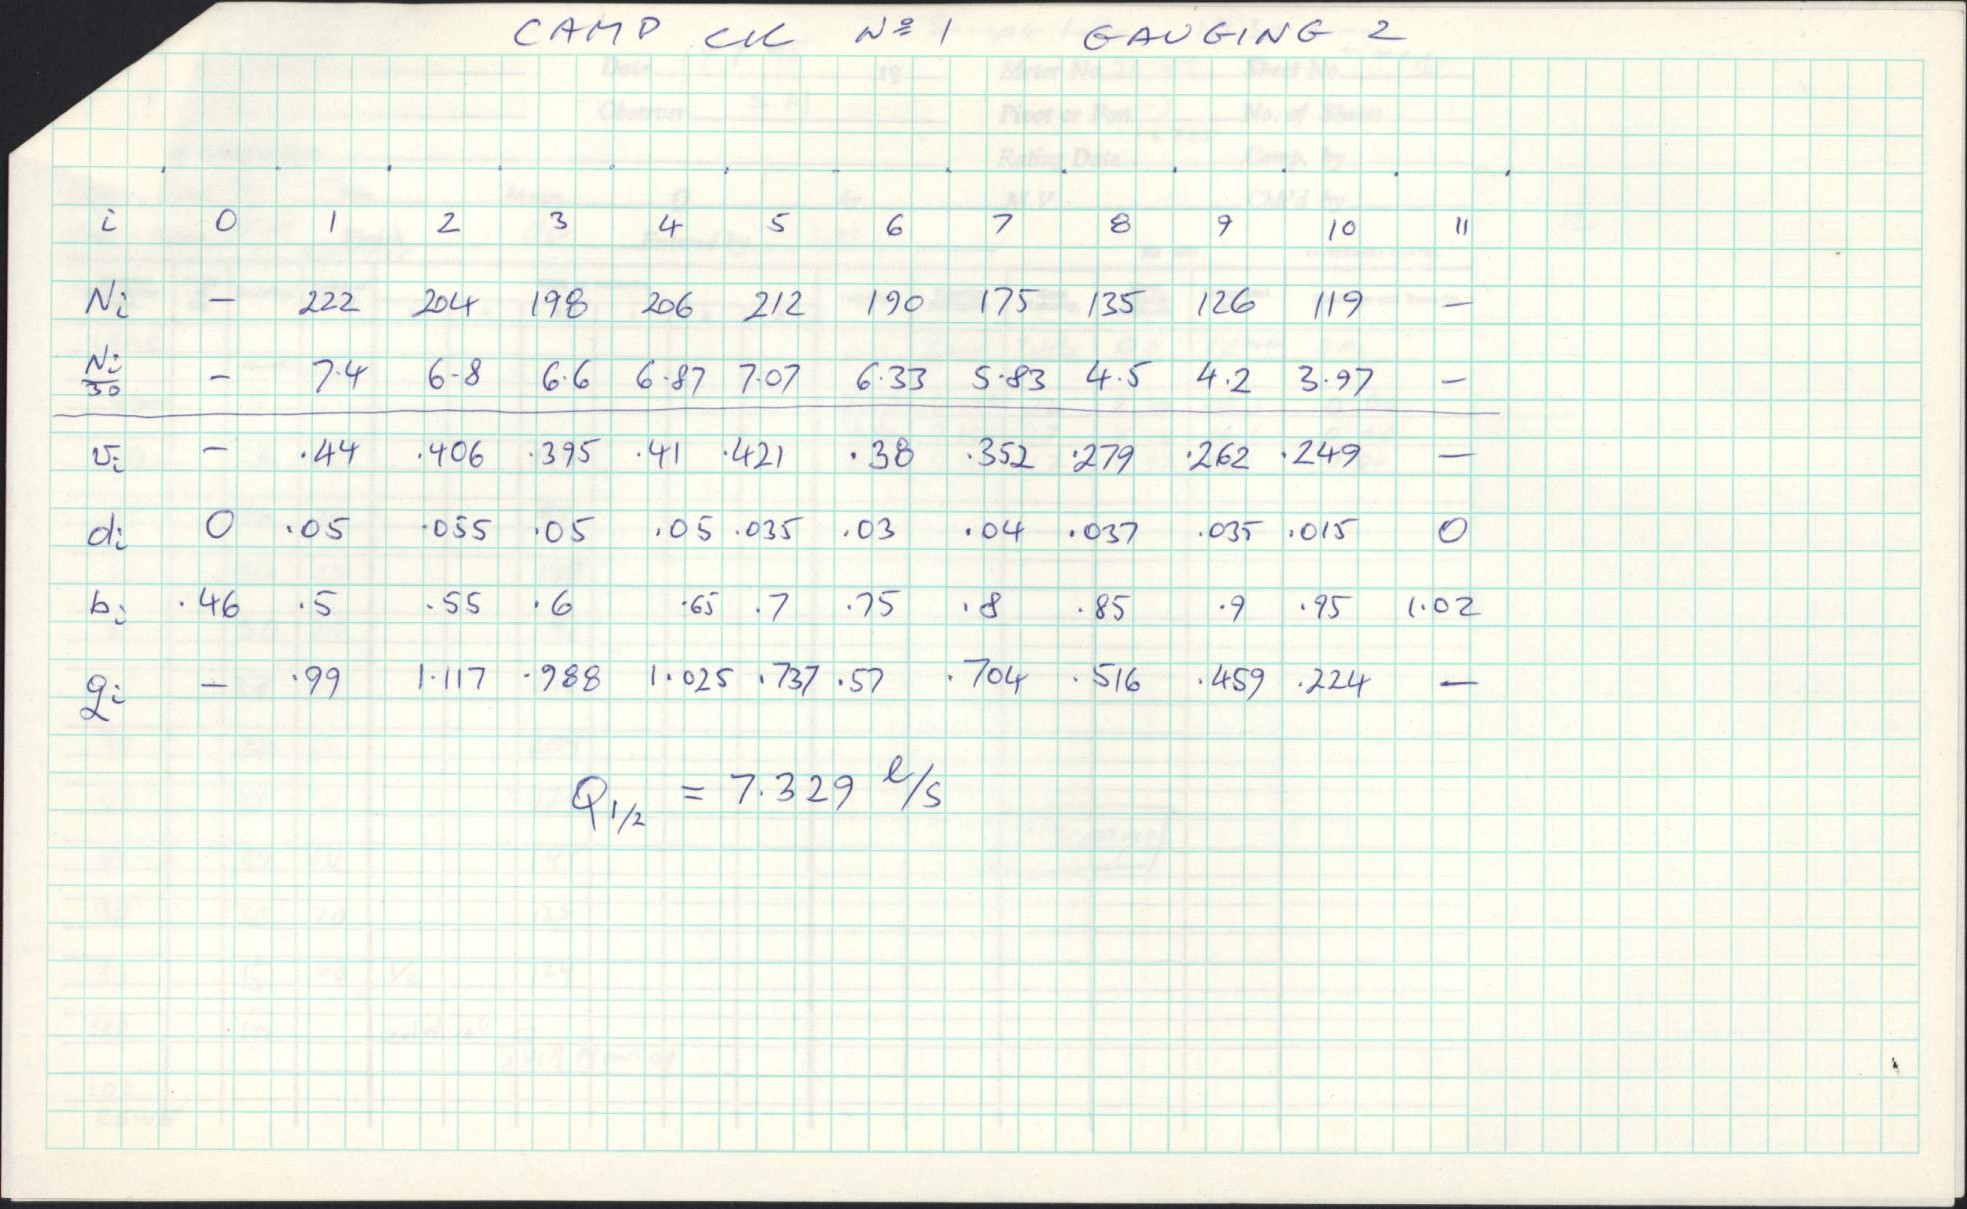 CAMP CK Nº 1 GAUGING 2
i 0 1 2 3 4 5 6 7 8 9 10 11
Ni - 222 204 198 206 212 190 175 135 126 119 -
Ni/30 - 7.4 6.8 6.6 6.87 7.07 6.33 5.83 4.5 4.2 3.97 -
vi - .44 .406 .395 .41 .421 .38 .352 .279 .262 .249 -
di 0 .05 .055 .05 .05 .035 .03 .04 .037 .035 .015 0
bi .46 .5 .55 .6 .65 .7 .75 .8 .85 .9 .95 1.02
qi - .99 1.117 .988 1.025 .737 .57 .704 .516 .459 .224 -
Q1/2 = 7.329 l/s